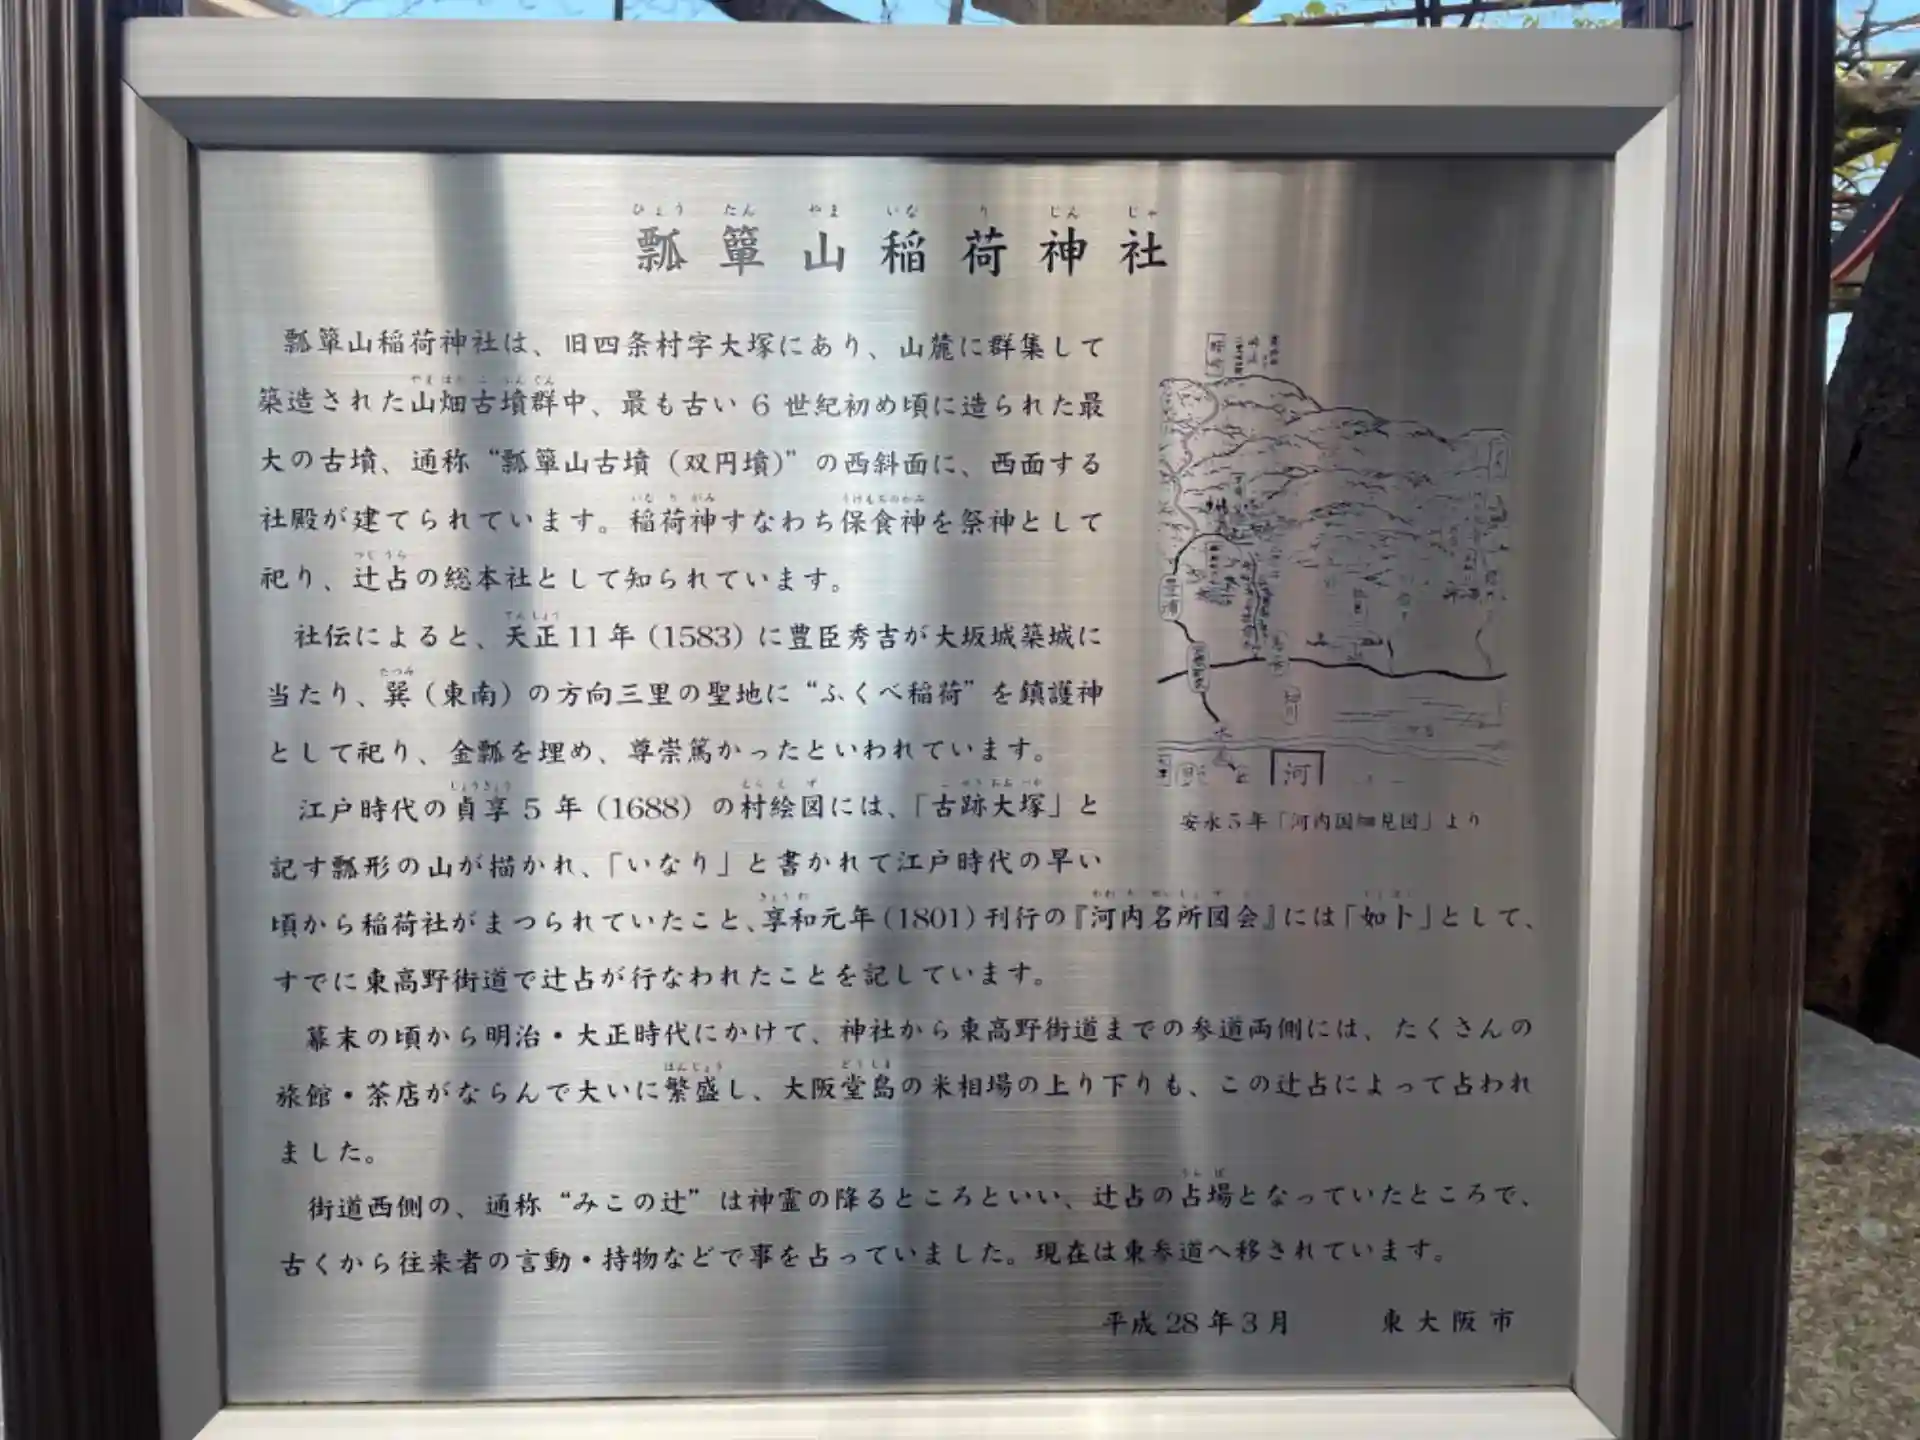 ひょう たん やま いな り じん じゃ
瓢箪山稲荷神社
瓢箪山稲荷神社は、旧四条村字大塚にあり、山麓に群集して
築造された山畑古墳群中、最も古い6世紀初め頃に造られた最
大の古墳、通称“瓢箪山古墳（双円墳）”の西斜面に、西面する
いなりがみ うけもちのかみ
社殿が建てられています。稲荷神すなわち保食神を祭神として
つじうら
祀り、辻占の総本社として知られています。
てんしょう
社伝によると、天正11年（1583）に豊臣秀吉が大坂城築城に
たつみ
当たり、巽（東南）の方向三里の聖地に“ふくべ稲荷”を鎮護神
として祀り、金瓢を埋め、尊崇篤かったといわれています。
じょうきょう むらえず
江戸時代の貞享5年（1688）の村絵図には、「古跡大塚」と
記す瓢形の山が描かれ、「いなり」と書かれて江戸時代の早い
きょうわ
頃から稲荷社がまつられていたこと、享和元年（1801）刊行の『河内名所図会』には「如卜」として、
すでに東高野街道で辻占が行なわれたことを記しています。
幕末の頃から明治・大正時代にかけて、神社から東高野街道までの参道両側には、たくさんの
はんじょう どうじま
旅館・茶店がならんで大いに繁盛し、大阪堂島の米相場の上り下りも、この辻占によって占われ
ました。
うらば
街道西側の、通称“みこの辻”は神霊の降るところといい、辻占の占場となっていたところで、
古くから往来者の言動・持物などで事を占っていました。現在は東参道へ移されています。
平成28年3月 東大阪市
河
安永5年「河内国細見図」より